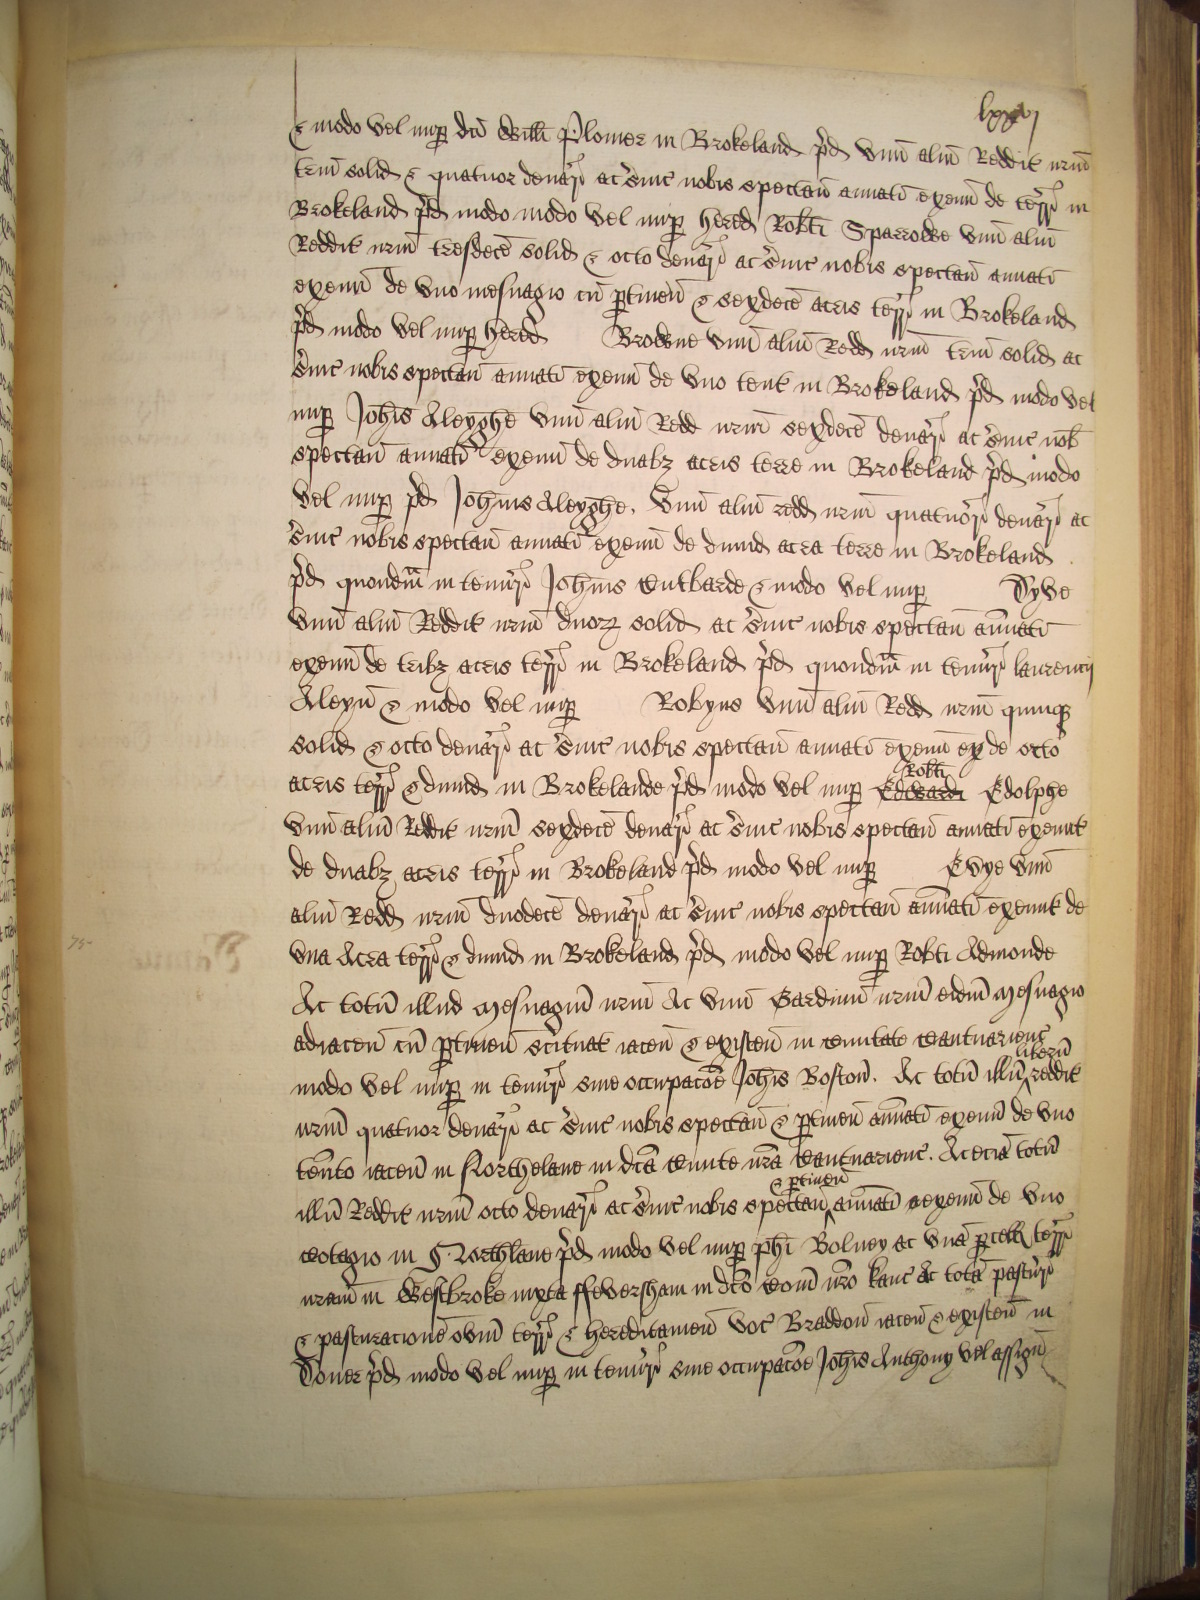 lxxvj
& modo vel nup̱ dc̄i Willi Plomer in Brokeland p̄d unū aliū Reddit nr̄m
triū solid & quatuor denar̄ ac s̄vic nobis spectan̄ annuatī exeun̄ de terr̄ in
Brokeland p̄d modo modo vel nup̱ hered Rob̄ti Sparrowe unū aliū
Reddit nr̄m tresdecē solid & octo denar̄ ac s̄vic nobis spectan̄ annuatī
exeun̄ de uno mesuagio cū p̱tineñ & sexdecē acris terr̄ in Brokeland
p̄d modo vel nup̱ hered Browne unū aliū Redd nr̄m triū solid ac
s̄vic nobis spectan̄ annuatī exeun̄ de uno tent in Brokeland p̄d modo vel
nup̱ Joh̄is Aleyghe unū aliū Redd nr̄m sexdecē denar̄ ac s̄vic nob̄
spectan̄ annuatī exeun̄ de duabꝫ acris terre in Brokeland p̄d modo
vel nup̱ p̄d Joh̄nis Aleyghe. unū aliū redd nr̄m quatuor̄ denar̄ ac
s̄vic nobis spectan̄ annuatī exeun̄ de dimid acra terre in Brokeland
p̄d quondm̄ in tenur̄ Joh̄nis Cutbarde & modo vel nup̱ Dyve
unū aliū Reddit nr̄m duoꝝ solid ac s̄vic nobis spectan̄ annuatī
exeun̄ de tribꝫ acris terr̄ in Brokeland p̄d quondm̄ in tenur̄ laurencij
Aleyn̄ & modo vel nup̱ Robyns unū aliū Redd nr̄m quinqꝫ
solid & octo denar̄ ac s̄vic nobis spectan̄ annuatī exeun̄ ex de octo
acris terr̄ & dimid in Brokelande p̄d modo vel nup̱ Edwardi Rob̄ti Edolphe
unū aliū Reddit nr̄m sexdecē denar̄ ac s̄vic nobis spectan̄ annuatī exeunt
de duabꝫ acris terr̄ in Brokeland p̄d modo vel nup̱ Evye unū
aliū Redd nr̄m duodecē denar̄ ac s̄vic nobis spectan̄ annuatī exeunt de
una Acra terr̄ & dimid in Brokeland p̄d modo vel nup̱ Robti Admonde
Ac totū illud Mesuagiū nr̄m Ac unū Gardinū nr̄m eidm̄ Mesuagio
adiaceñ cū p̱tineñ scituat iaceñ & existeñ in civitate Cantuariens̄
modo vel nup̱ in tenur̄ sive occupacōe Joh̄is Boston̄. Ac totū illū liberū reddit
nr̄m quatuor denar̄ ac s̄vic nobis spectan̄ & p̱tineñ annuatī exeun̄ de uno
ten̄to iaceñ in Northelane in dc̄a Civite nr̄a Cantuariens̄. Aceciā totū
illū Reddit nr̄m octo denar̄ ac s̄vic nobis spectan̄ & p̱tineñ annuatī exeun̄ de uno
Cotagio in Northlane p̄d modo vel nup̱ ph̄i Bolney ac unā p̱cell terr̄
nram̄ in Westbroke iuxta ffeversham in dc̄o Com̄ nr̄o kanc Ac totā pastur̄
& pasturacionē oviū terr̄ & hereditameñ voc̄ Braddon̄ iaceñ & existeñ in
Dover p̄d modo vel nup̱ in tenur̄ sive occupacōe Joh̄is Anthony vel assign̄
75